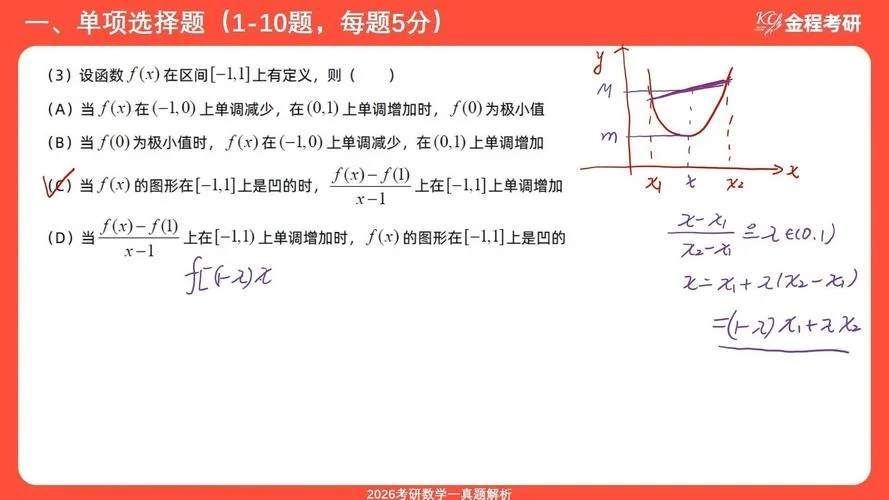 一、单项选择题（1-10题，每题5分）
KC 金程考研
（3）设函数 f(x) 在区间[−1,1]上有定义，则（　　）
（A）当 f(x) 在(−1,0) 上单调减少，在(0,1) 上单调增加时，f(0)为极小值
（B）当 f(0)为极小值时，f(x) 在(−1,0) 上单调减少，在(0,1) 上单调增加
（C）当 f(x) 的图形在[−1,1]上是凹的时，(f(x)−f(1))/(x−1) 上在[−1,1)上单调增加
（D）当 (f(x)−f(1))/(x−1) 上在[−1,1) 上单调增加时，f(x) 的图形在[−1,1]上是凹的
f[(1-λ)x
y
M
m
x₁ x x₂ x
(x-x₁)/(x₂-x₁) ≜ λ∈(0,1)
x=x₁+λ(x₂-x₁)
=(1-λ)x₁+λx₂
2026考研数学一真题解析